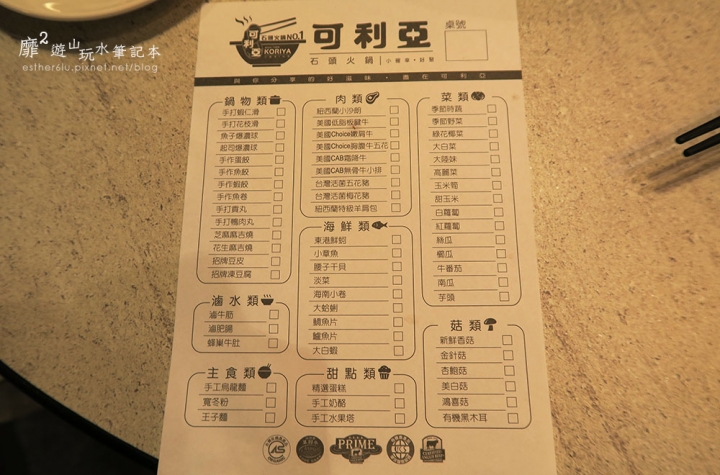 靡²遊山玩水筆記本
esther6iu.pixnet.net/blog
可利亞
石頭火鍋NO.1
KORIYA
可利亞
桌號
石頭火鍋
與你分享的好滋味，盡在可利亞
鍋物類
手打蝦仁滑
手打花枝滑
魚子爆濃球
起司爆濃球
手作蛋餃
手作魚餃
手作蝦餃
手作魚卷
手打貢丸
手打鴨肉丸
芝麻麻吉燒
花生麻吉燒
招牌豆皮
招牌凍豆腐
滷水類
滷牛筋
滷肥腸
蜂巢牛肚
主食類
手工烏龍麵
寬冬粉
王子麵
肉類
紐西蘭小沙朗
美國低脂板腱牛
美國Choice嫩肩牛
美國Choice胸腹牛五花
美國CAB霜降牛
美國CAB無骨牛小排
台灣活菌五花豬
台灣活菌梅花豬
紐西蘭特級羊肩包
海鮮類
東港鮮蚵
小章魚
腰子干貝
淡菜
海南小卷
大蛤蜊
鯛魚片
鱸魚片
大白蝦
甜點類
精選蛋糕
手工奶酪
手工水果塔
菜類
季節時蔬
季節野菜
綠花椰菜
大白菜
大陸妹
高麗菜
玉米筍
甜玉米
白蘿蔔
紅蘿蔔
絲瓜
櫛瓜
牛番茄
南瓜
芋頭
菇類
新鮮香菇
金針菇
杏鮑菇
美白菇
鴻喜菇
有機黑木耳
PRIME